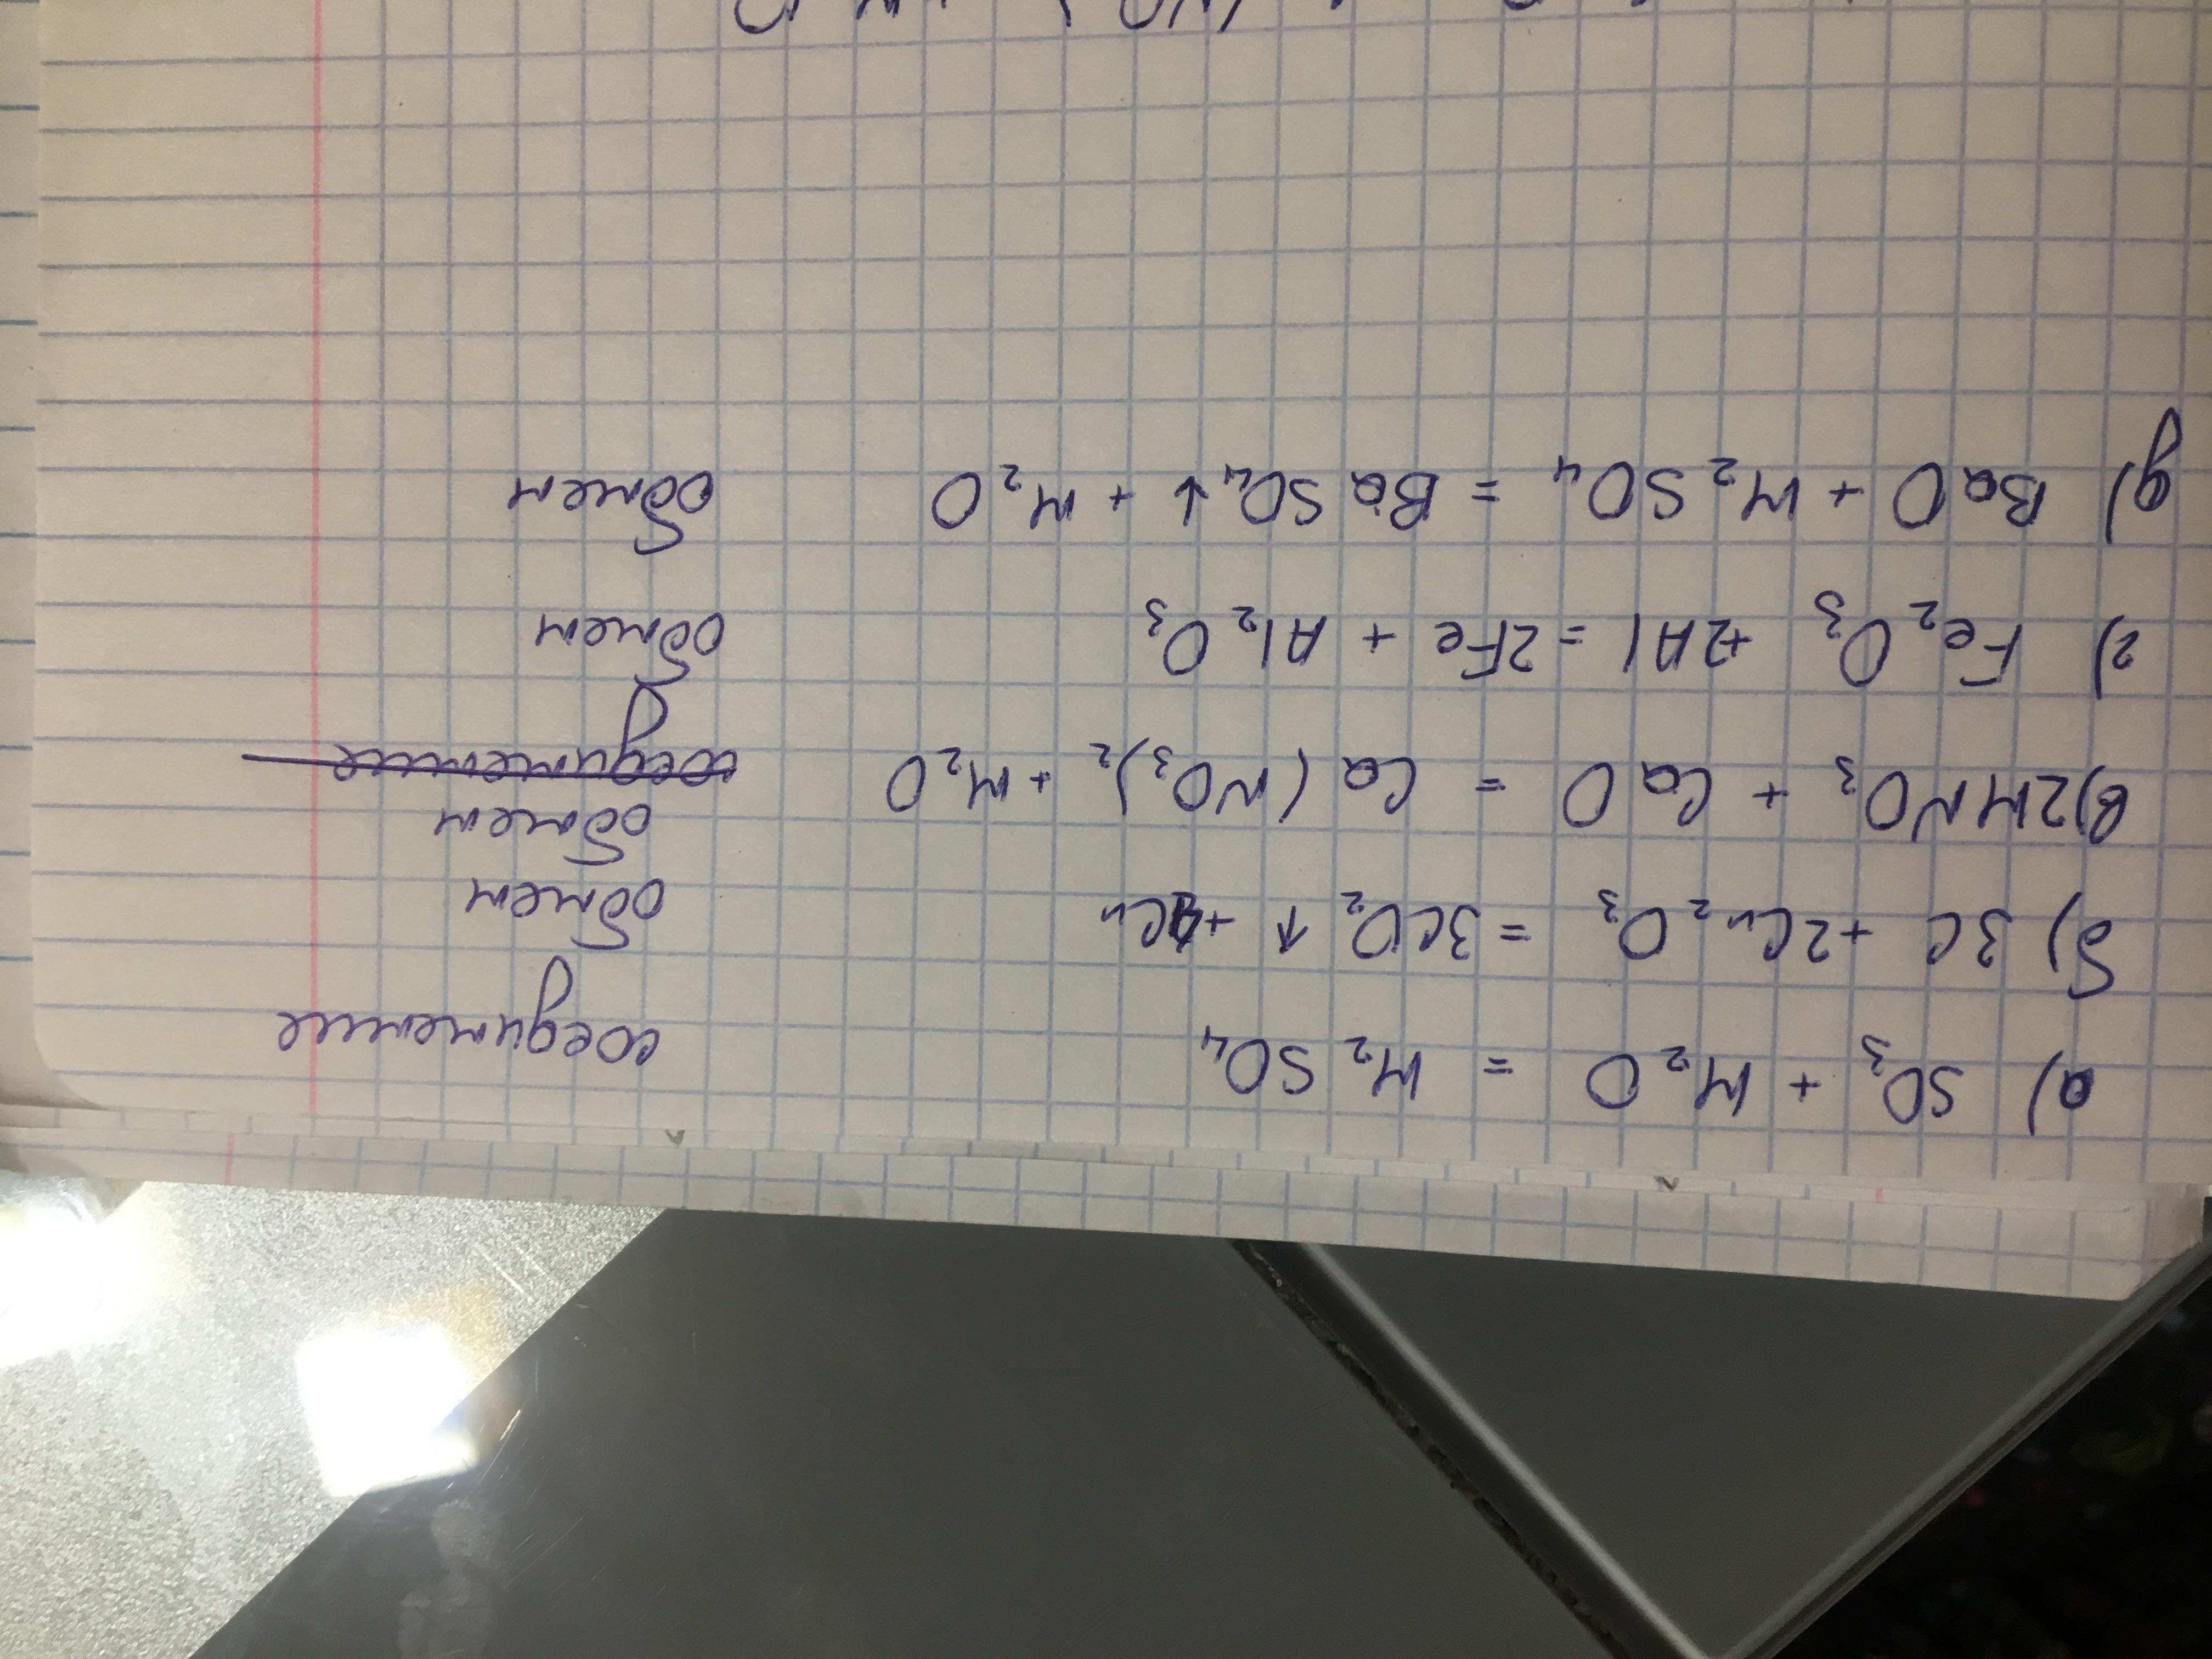 а) SO₃ + H₂O = H₂SO₄ соединение
б) 3C +2Cu₂O₃ =3CO₂ ↑ +4Cu обмен
обмен
в)2HNO₃ + CaO = Ca(NO₃)₂ +H₂O соединение
г) Fe₂O₃ +2Al =2Fe + Al₂O₃ обмен
д) BaO + H₂SO₄ = BaSO₄↓ + H₂O обмен